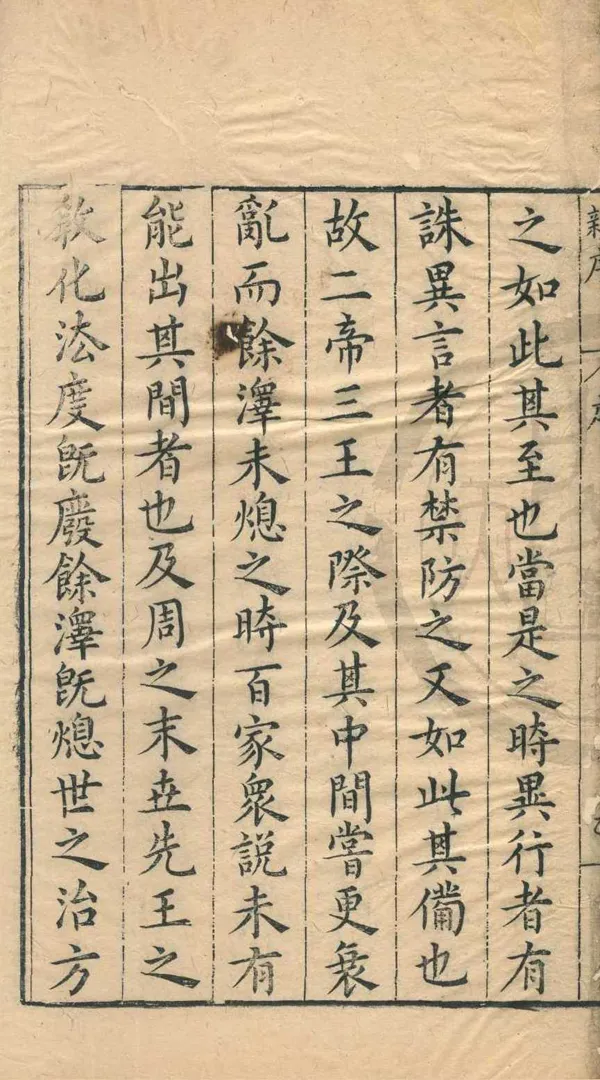 新序
之如此其至也當是之時異行者有
誅異言者有禁防之又如此其備也
故二帝三王之際及其中間嘗更衰
亂而餘澤未熄之時百家衆説未有
能出其間者也及周之末丗先王之
敎化法度旣廢餘澤旣熄世之治方